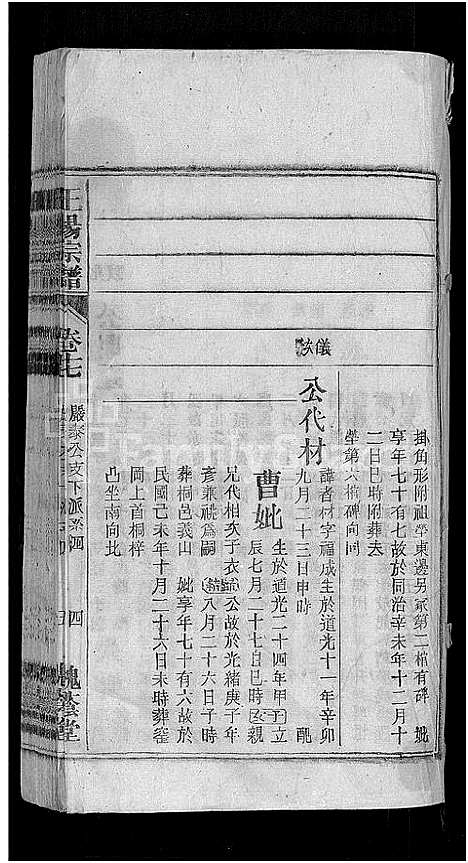 儀次
掛角形附祖塋東邊另冢第二棺有碑 妣
享年七十有七故於同治辛未年十二月十
二日巳時附葬夫
塋第六棺碑向同
公代材
諱耆材字福成生於道光十一年辛卯
九月二十三日申時 配
曹妣
生於道光二十四年甲子立
辰七月二十七日巳時 安親
兄代相次子衣 公故於光緒庚子年
彥兼祧為嗣 八月二十六日子時
葬桐邑義山 妣享年七十有六故於
民國己未年十月二十六日未時葬窑
岡上首桐梓
凸坐南向北
王楊宗譜
卷七
嚴泰公支下派系四
四
槐蔭堂